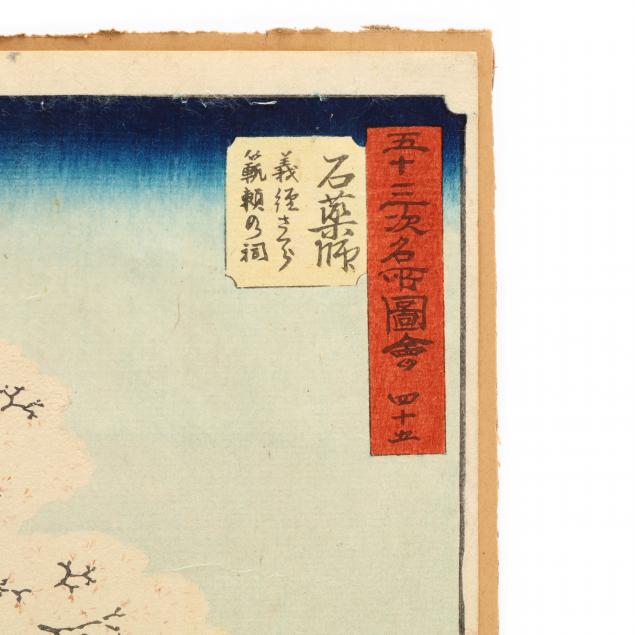 五十三次名所圖會 四十五
石薬師
義経さくら
範頼の祠